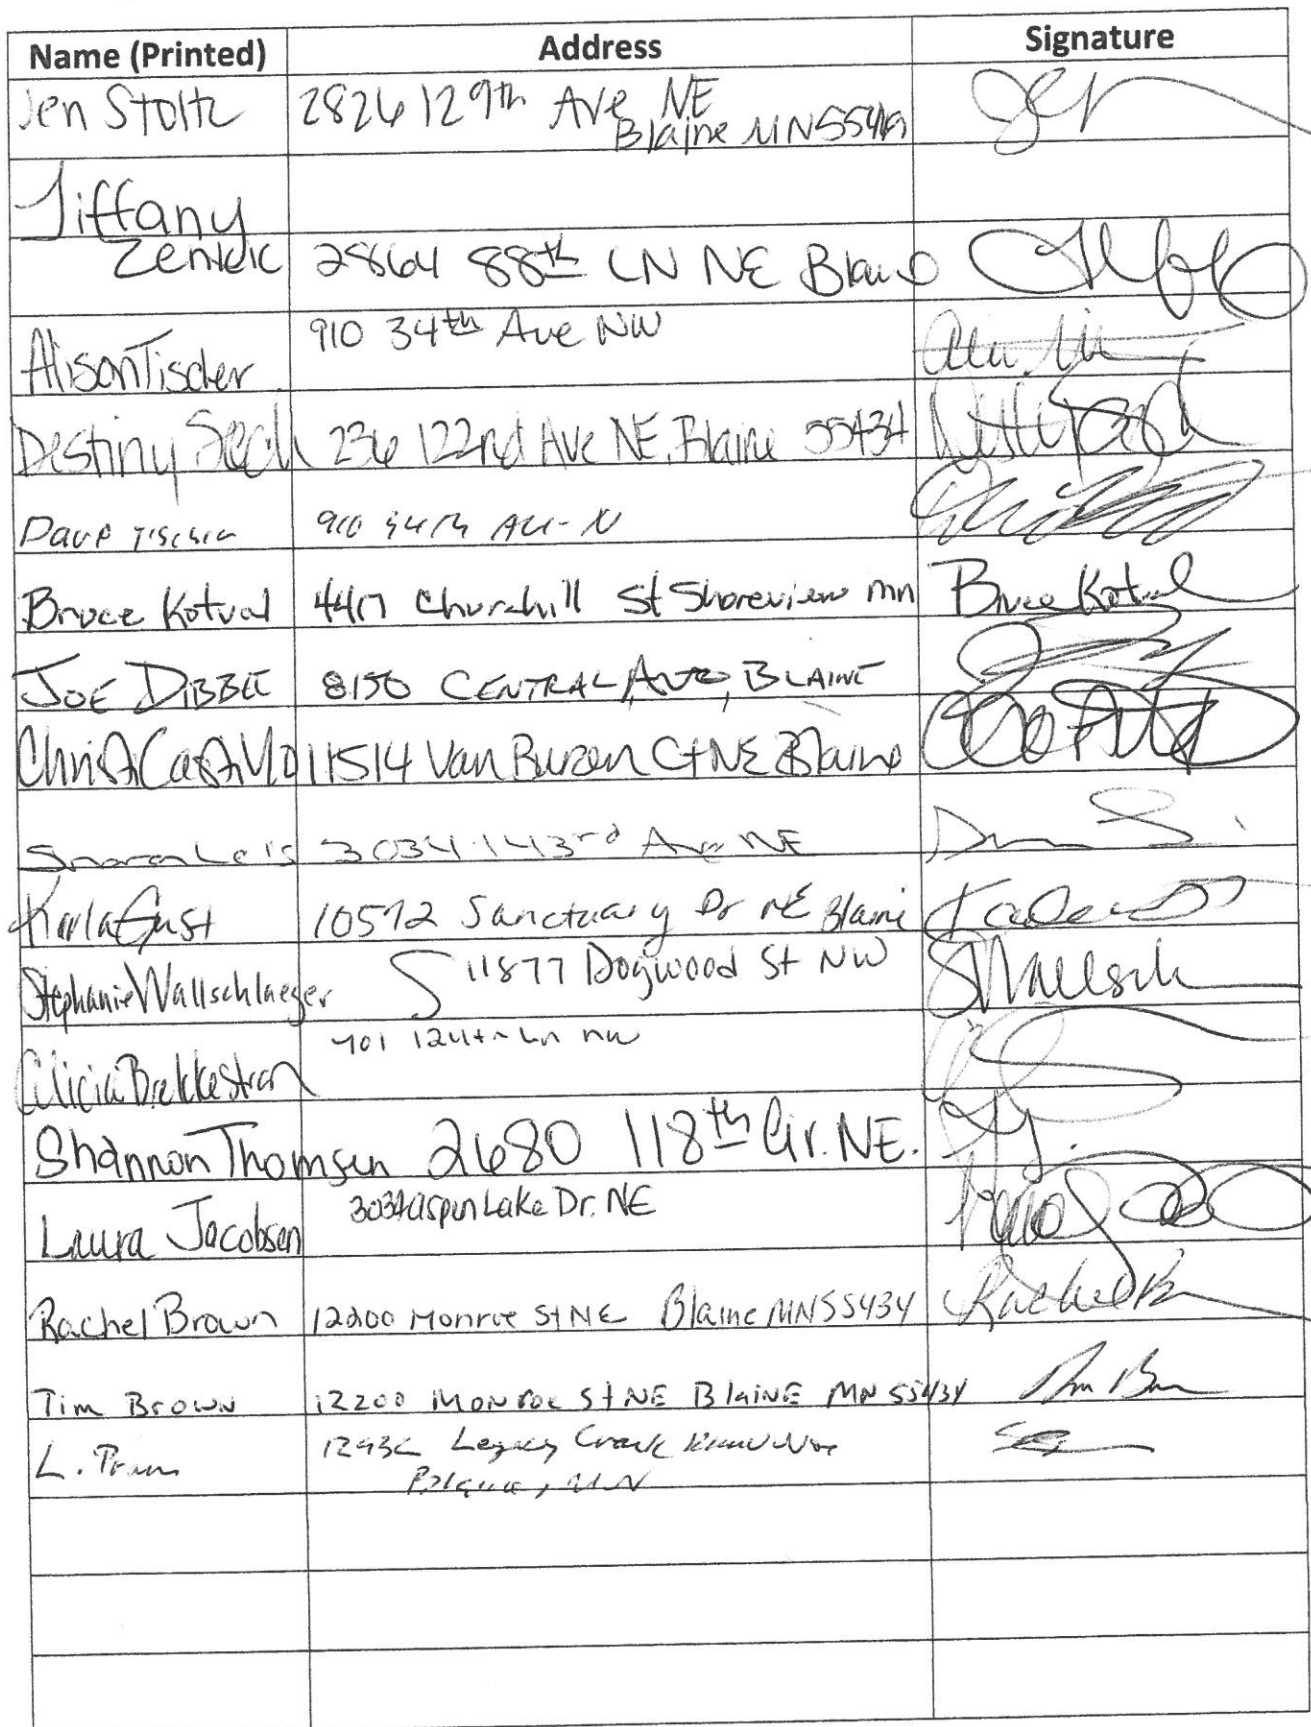 Name (Printed) Address Signature
Jen Stoltz 2826 129th Ave NE
Blaine MN 55449
Tiffany
Zenteic 2864 88th LN NE Blaine
910 34th Ave NW
Alison Tischer
Destiny 236 122nd Ave NE, Blaine 55434
Dave Tischer 910 34th Ave N
Bruce Kotval 4417 Churchill St Shoreview mn Bruce Kotval
JOE DIBBLE 8150 CENTRAL AVE, BLAINE
Christi Castillo 11514 Van Buren Ct NE Blaine
Sharon Leis 3034 143rd Ave NE
Karla Gust 10572 Sanctuary Dr NE Blaine
Stephanie Wallschlaeger 11877 Dogwood St NW SWallsch
701 124th Ln NW
Alicia Brekkestran
Shannon Thomsen 2680 118th Cir. NE.
Laura Jacobsen 3034 Aspen Lake Dr. NE
Rachel Brown 12200 Monroe St NE Blaine MN 55434 Rachel B
Tim Brown 12200 Monroe St NE BlaiNE MN 55434
L. Legacy Creek
Blaine, MN